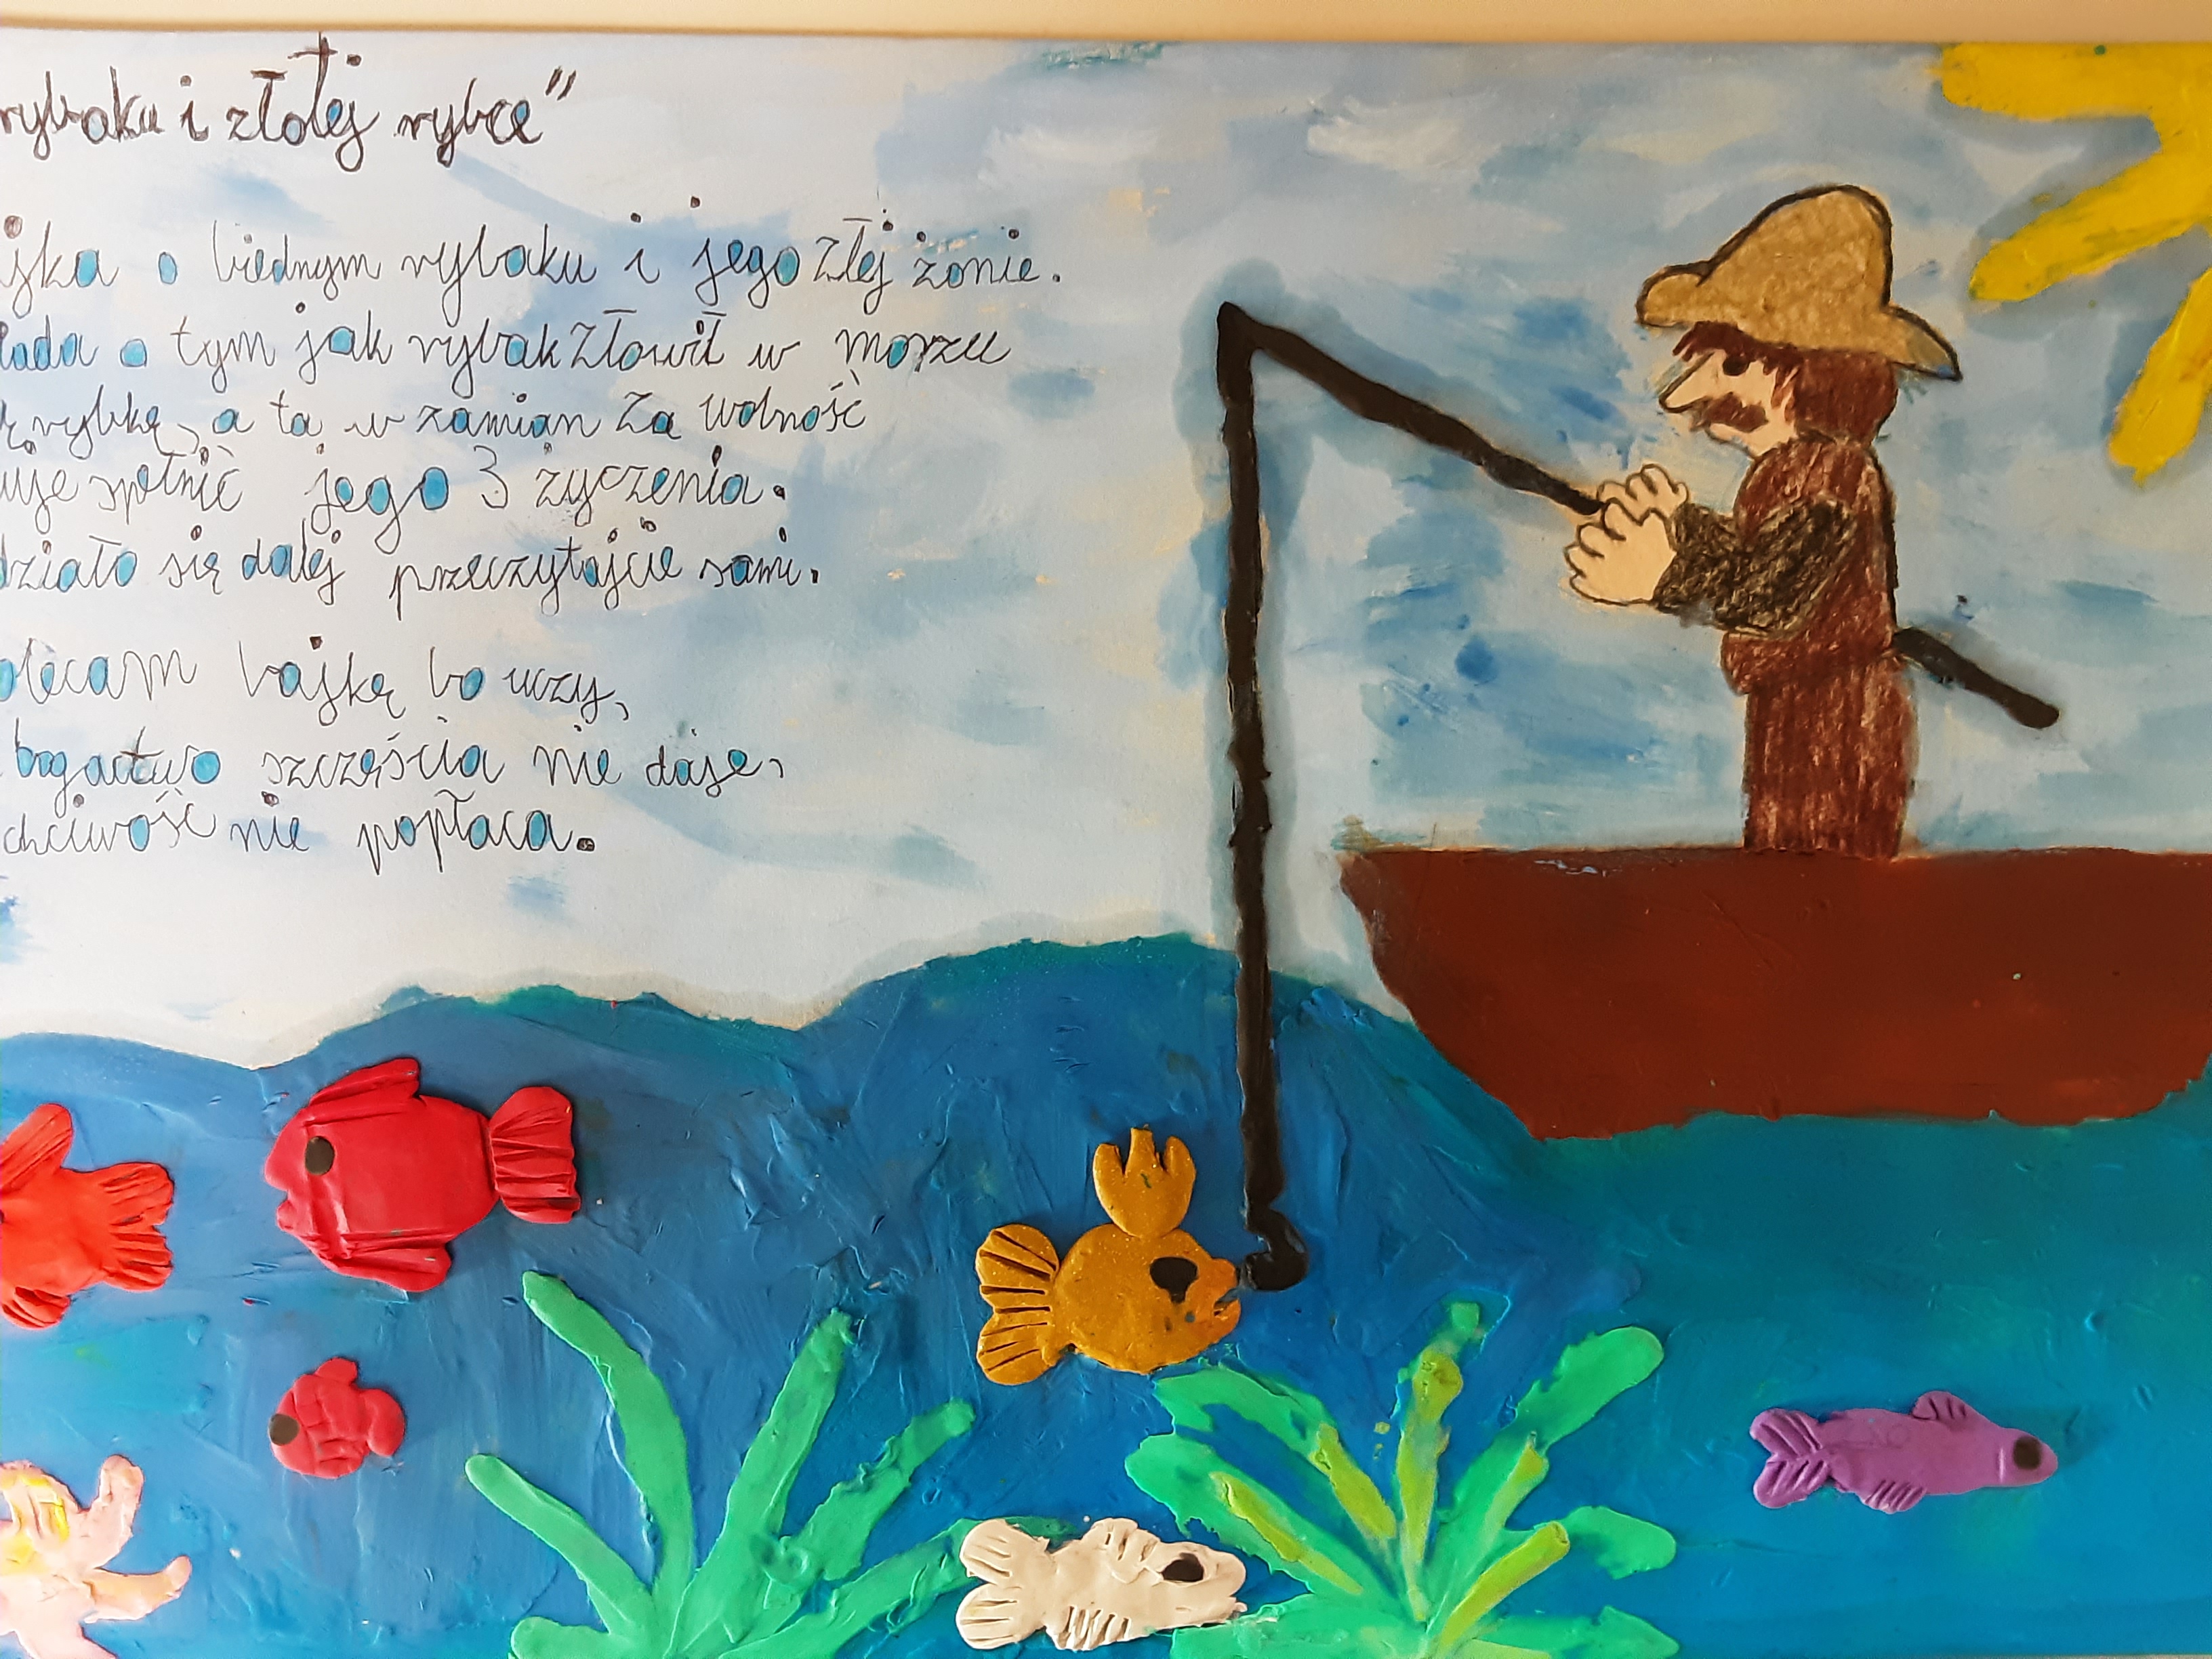 rybaku i złotej rybce”
jska o biednym rybaku i jego złej żonie.
iada o tym jak rybak złowił w morzu
rybkę, a ta w zamian za wolność
uje spełnić jego 3 życzenia.
działo się dalej przeczytajcie sami.
olecam bajkę bo uczy,
bogactwo szczęścia nie daje,
chciwość nie popłaca.